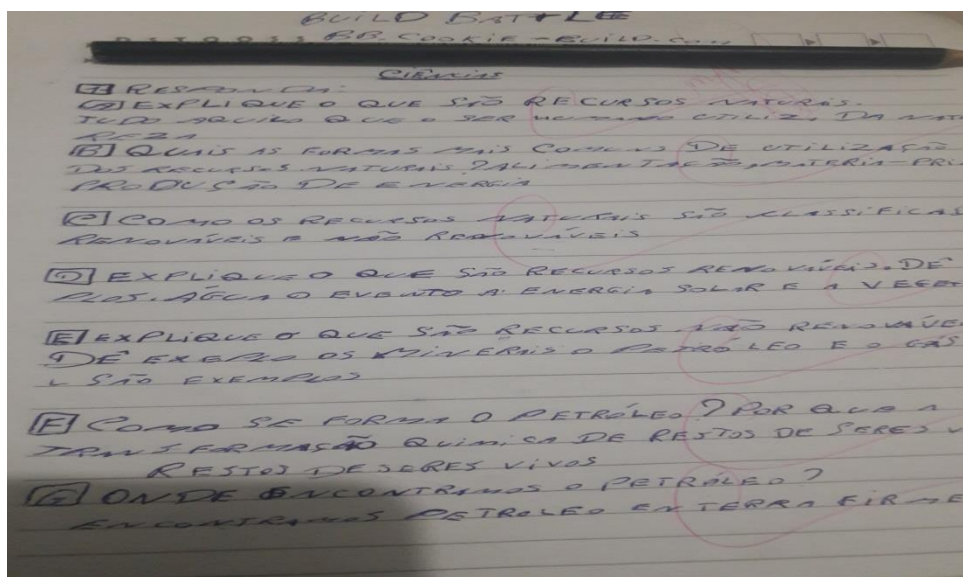 BUILD BATTLE
BB. COOKIE-BUILD.COM
CIÊNCIAS
RESPONDA:
A EXPLIQUE O QUE SÃO RECURSOS NATURAIS.
TUDO AQUILO QUE O SER HUMANO UTILIZ. DA NATU
REZA
B QUAIS AS FORMAS MAIS COMUNS DE UTILIZAÇÃO
DOS RECURSOS NATURAIS? ALIMENTAÇÃO, MATERIA-PRI
PRODUÇÃO DE ENERGIA
C COMO OS RECURSOS NATURAIS SÃO CLASSIFICAS
RENOVÁVEIS E NÃO RENOVÁVEIS
D EXPLIQUE O QUE SÃO RECURSOS RENOVÁVEIS. DÊ
PLOS. ÁGUA O EVENTO A ENERGIA SOLAR E A VEGET
E EXPLIQUE O QUE SÃO RECURSOS NÃO RENOVÁVE
DÊ EXEMPLO OS MINERAIS O PETRÓLEO E O GÁS
L SÃO EXEMPLOS
F COMO SE FORMA O PETRÓLEO? POR QUE A
TRANSFORMAÇÃO QUIMICA DE RESTOS DE SERES V
RESTOS DE SERES VIVOS
G ONDE ENCONTRAMOS O PETRÓLEO?
ENCONTRAMOS PETROLEO EN TERRA FIRME